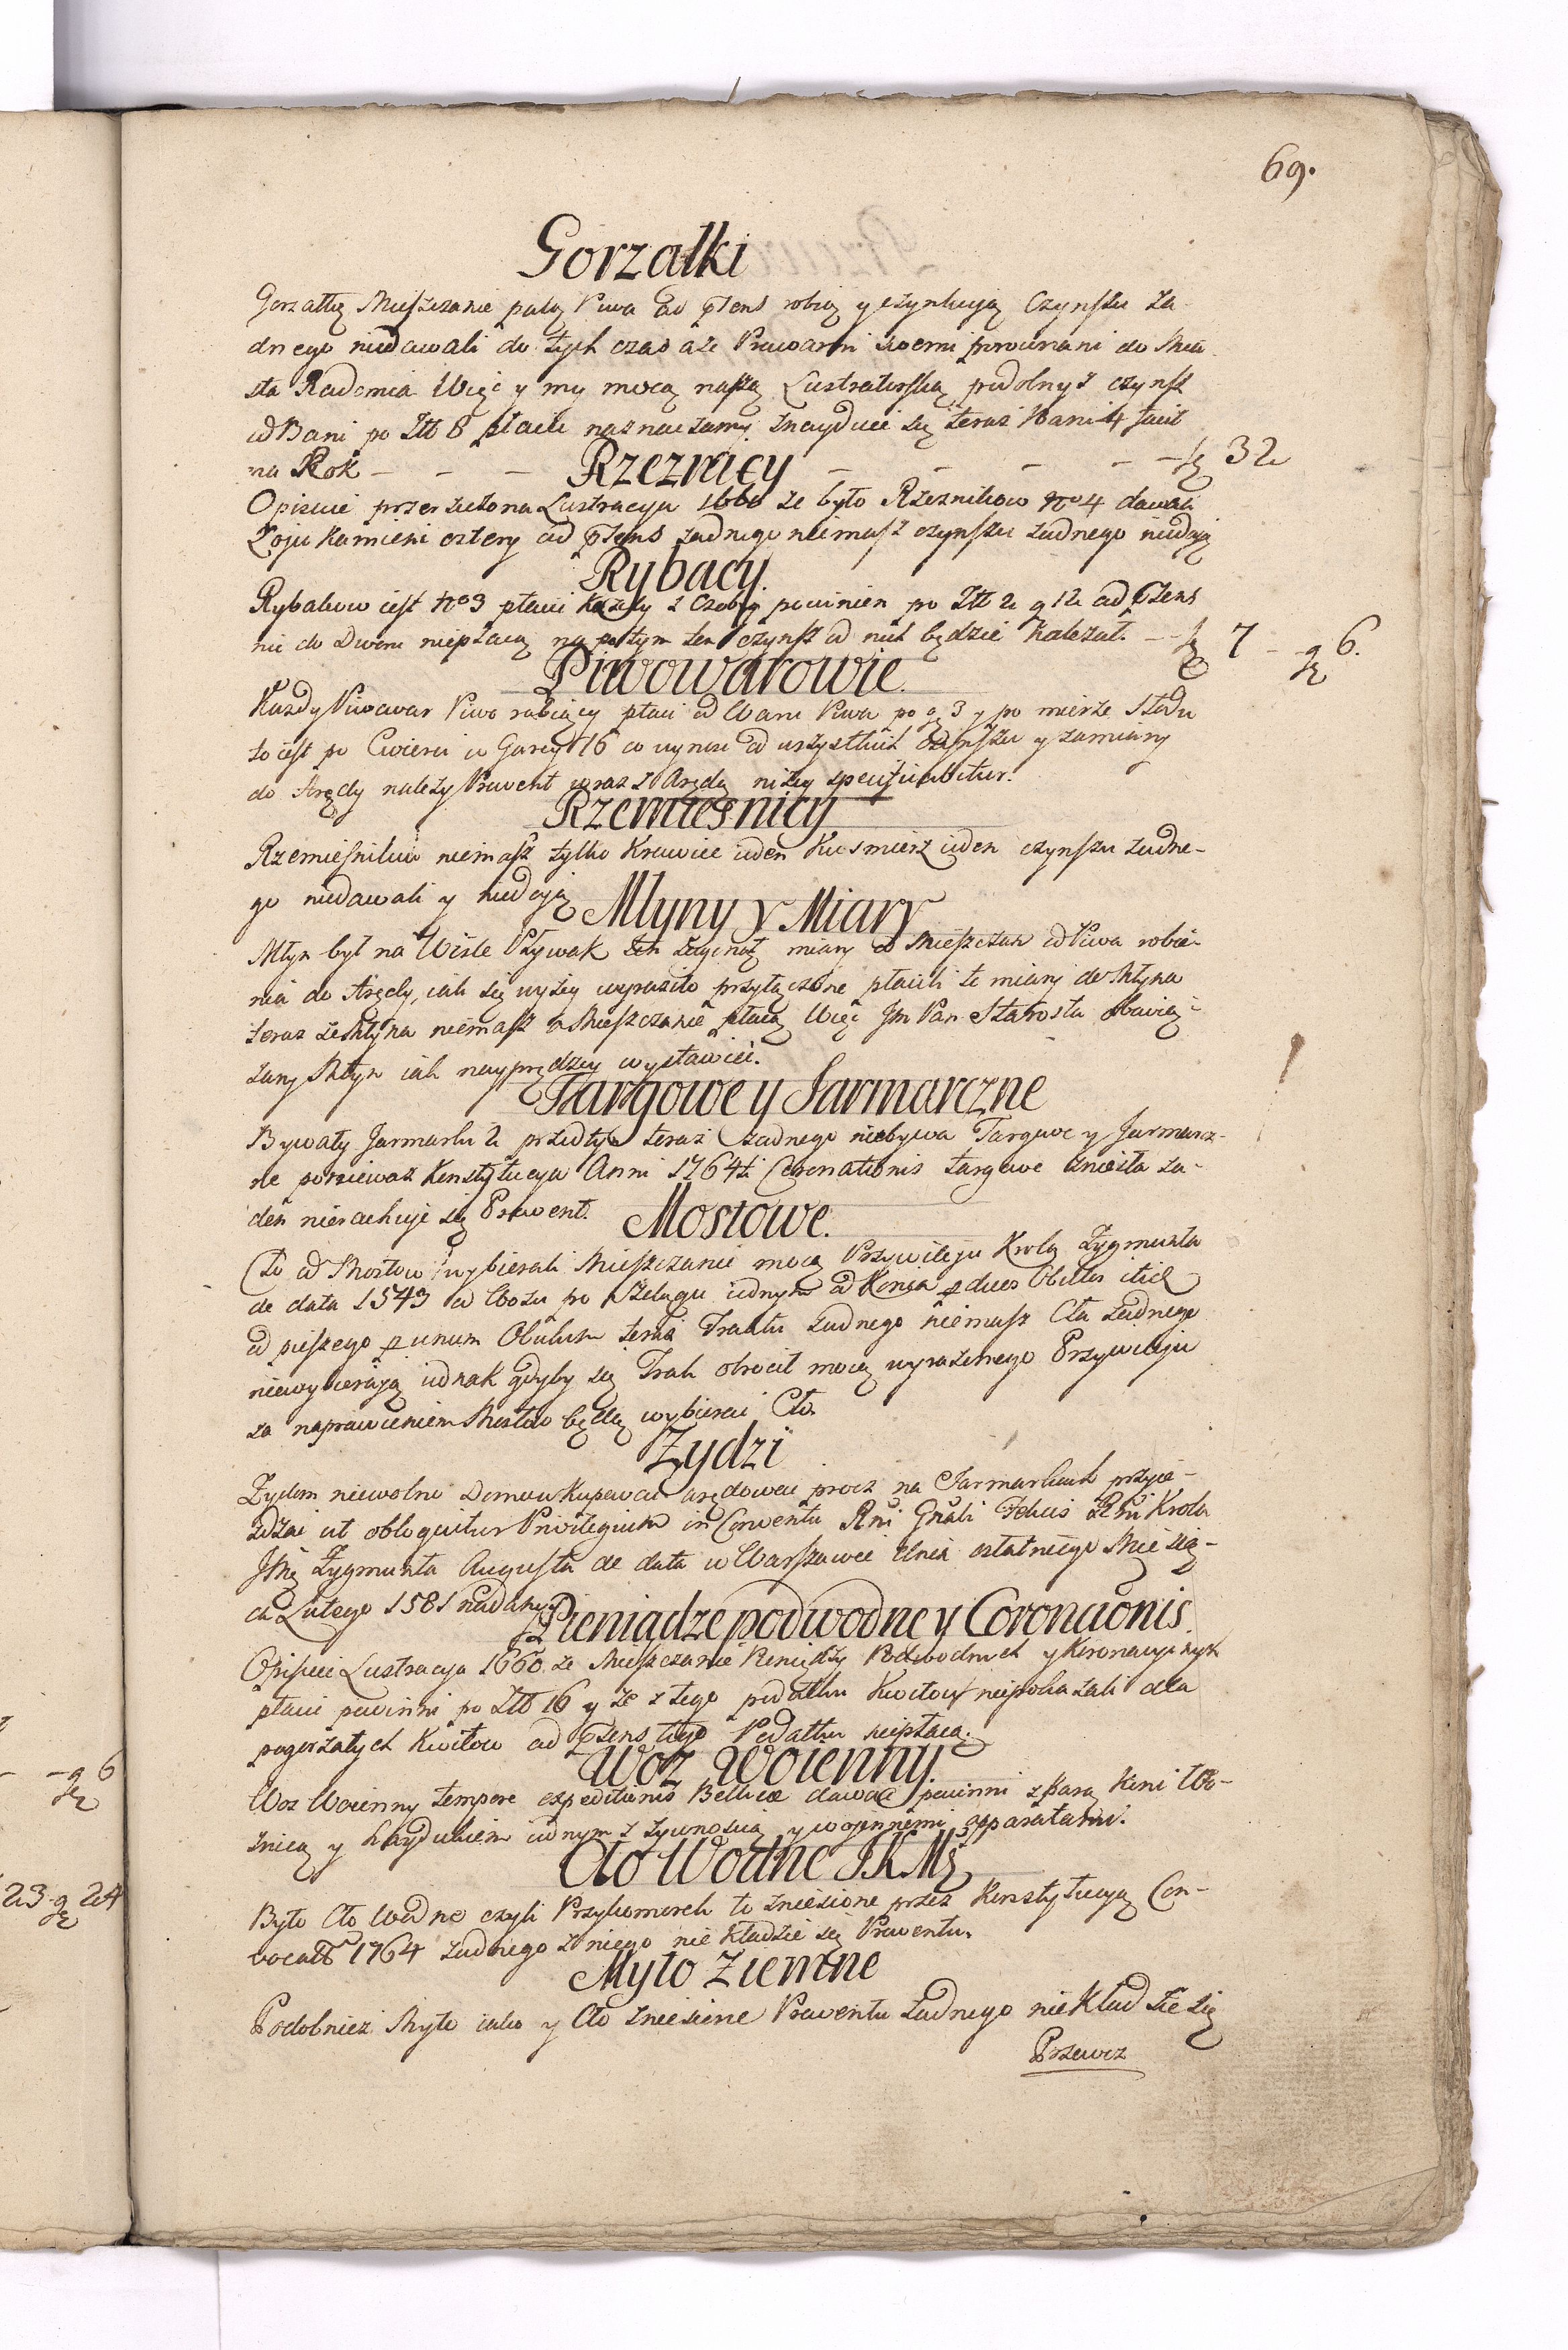 69.
Gorzałki
Gorzałkę Mieszczanie palą Piwa ad præsens robią y szynkuią Czynszu ża-
dnego niedawali do tych czas aże Prawami swemi porownani do Mia-
sta Radomia Więc y my mocą naszą Lustratorską podobnyż czynsz
od Bani po Złł 8 płacić naznaczamy. Znayduie się teraz Bani 4 facit
na Rok - - - - - - - 32
Rzeznicy
Opisuie przeszłona Lustracya 1660 że było Rzeznikow Nro 4 dawali
Łoju Kamieni cztery ad præsens żadnego niemasz czynszu żadnego niedaią
Rybacy.
Rybakow iest Nro 3 płacić Każdy z Osoby powinien po Złł 2 g 12 ad præsens
nic do Dworu niepłacą na potym ten czynsz od nich będzie należał. - - 7 - g 6.
Piwowarowie.
Każdy Piwowar Piwo robiący płaci od Waru Piwa po g 3 y po mierze Słodu
to iest po Cwierci u Garcy 16 co wynosi od wszystkich czynszu y zamiany
do Arędy należy Prowent wraz z Arędą niżey specificabitur.
Rzemiesnicy
Rzemieslnikow niemasz tylko Krawiec ieden Kusmierz ieden czynszu żadne-
go niedawali y niedaią
Młyny y Miary
Młyn był na Wisle Pływak ten zaginął miary od Mieszczan od Piwa robie-
nia do Arędy, iak się wyżey wyraziło przyłączone płacili te miary do Młyna
teraz że Młyna niemasz a Mieszczanie płacą Więc Jm Pan Starosta obowią-
zany Młyn iak nayprędzey wystawić.
Targowe y Jarmarczne
Bywały Jarmarki 2 przedtym teraz żadnego niebywa Targowe y Jarmarcz-
ne ponieważ Konstytucya Anni 1764ti Coronationis targowe zniosła ża-
den nierachuje się Prowent.
Mostowe.
Cło od Mostow wybierali Mieszczanie mocą Przywileju Krola Zygmunta
de data 1543 od Wozu po Szelągu iednym od Konia p duos Obulos itid
od pieszego p unum Obulum teraz Traktu żadnego niemasz Cła żadnego
niewybieraią iednak gdyby się Trak obrocił mocą wyrażonego Przywileju
za naprawieniem Mostow będą wybierać Cło.
Żydzi
Żydom niewolno Domow Kupować arędować procz na Jarmarkach przyie-
zdżać ut obloquitur Privilegium in Conventu Rni Gnali Polnis Krola
JMci Zygmunta Augusta de data w Warszawie dnia ostatniego Miesią-
ca Lutego 1581 nadany.
Pieniądze podwodne y Coronationis.
Opisuie Lustracya 1660 że Mieszczanie Pieniędzy Podwodnych y Koronacyinych
płacić powinni po Złł 16 y że z tego podatku Kwitow niepokazali dla
pogorzałych Kwitow ad præsens tego Podatku niepłacą.
Woz Woienny.
Woz Woienny tempore expeditionis Bellicæ dawać powinni z parą Koni Wo-
znicą y Haydukiem iednym z żywnością y woiennemi apparatami.
Cło Wodne J.K.Mci
Było Cło Wodne czyli Przykomorek to zniesione przez Konstytucyą Con-
vocatt. 1764 żadnego z niego nie kładzie się Prowentu.
Myto Ziemne
Podobnież Myto iako y Cło zniesione Prowentu żadnego niekładzie się
Przewoz
- - g 6
23 g 24